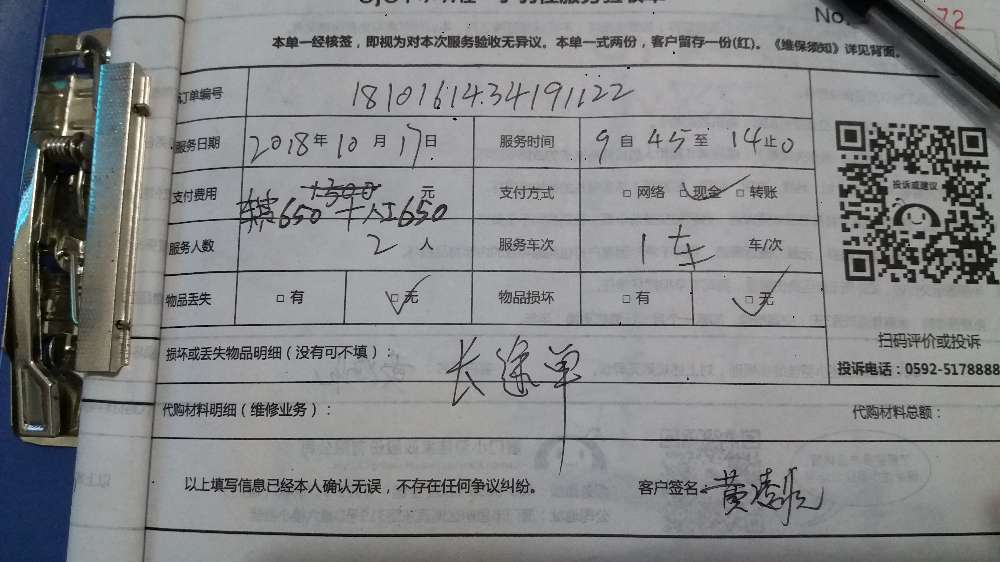 No. 72
本单一经核签，即视为对本次服务验收无异议。本单一式两份，客户留存一份(红)。《维保须知》详见背面。
订单编号 1810161434191122
服务日期 2018年10月17日 服务时间 9自45至14止0
支付费用 1300 元 支付方式 □网络 □现金 □转账
650 人工650
服务人数 2人 服务车次 1车 车/次
投诉或建议
物品丢失 □有 □无 物品损坏 □有 □无
扫码评价或投诉
损坏或丢失物品明细（没有可不填）： 长途单
投诉电话：0592-5178888
代购材料明细（维修业务）： 代购材料总额：
以上填写信息已经本人确认无误，不存在任何争议纠纷。 客户签名